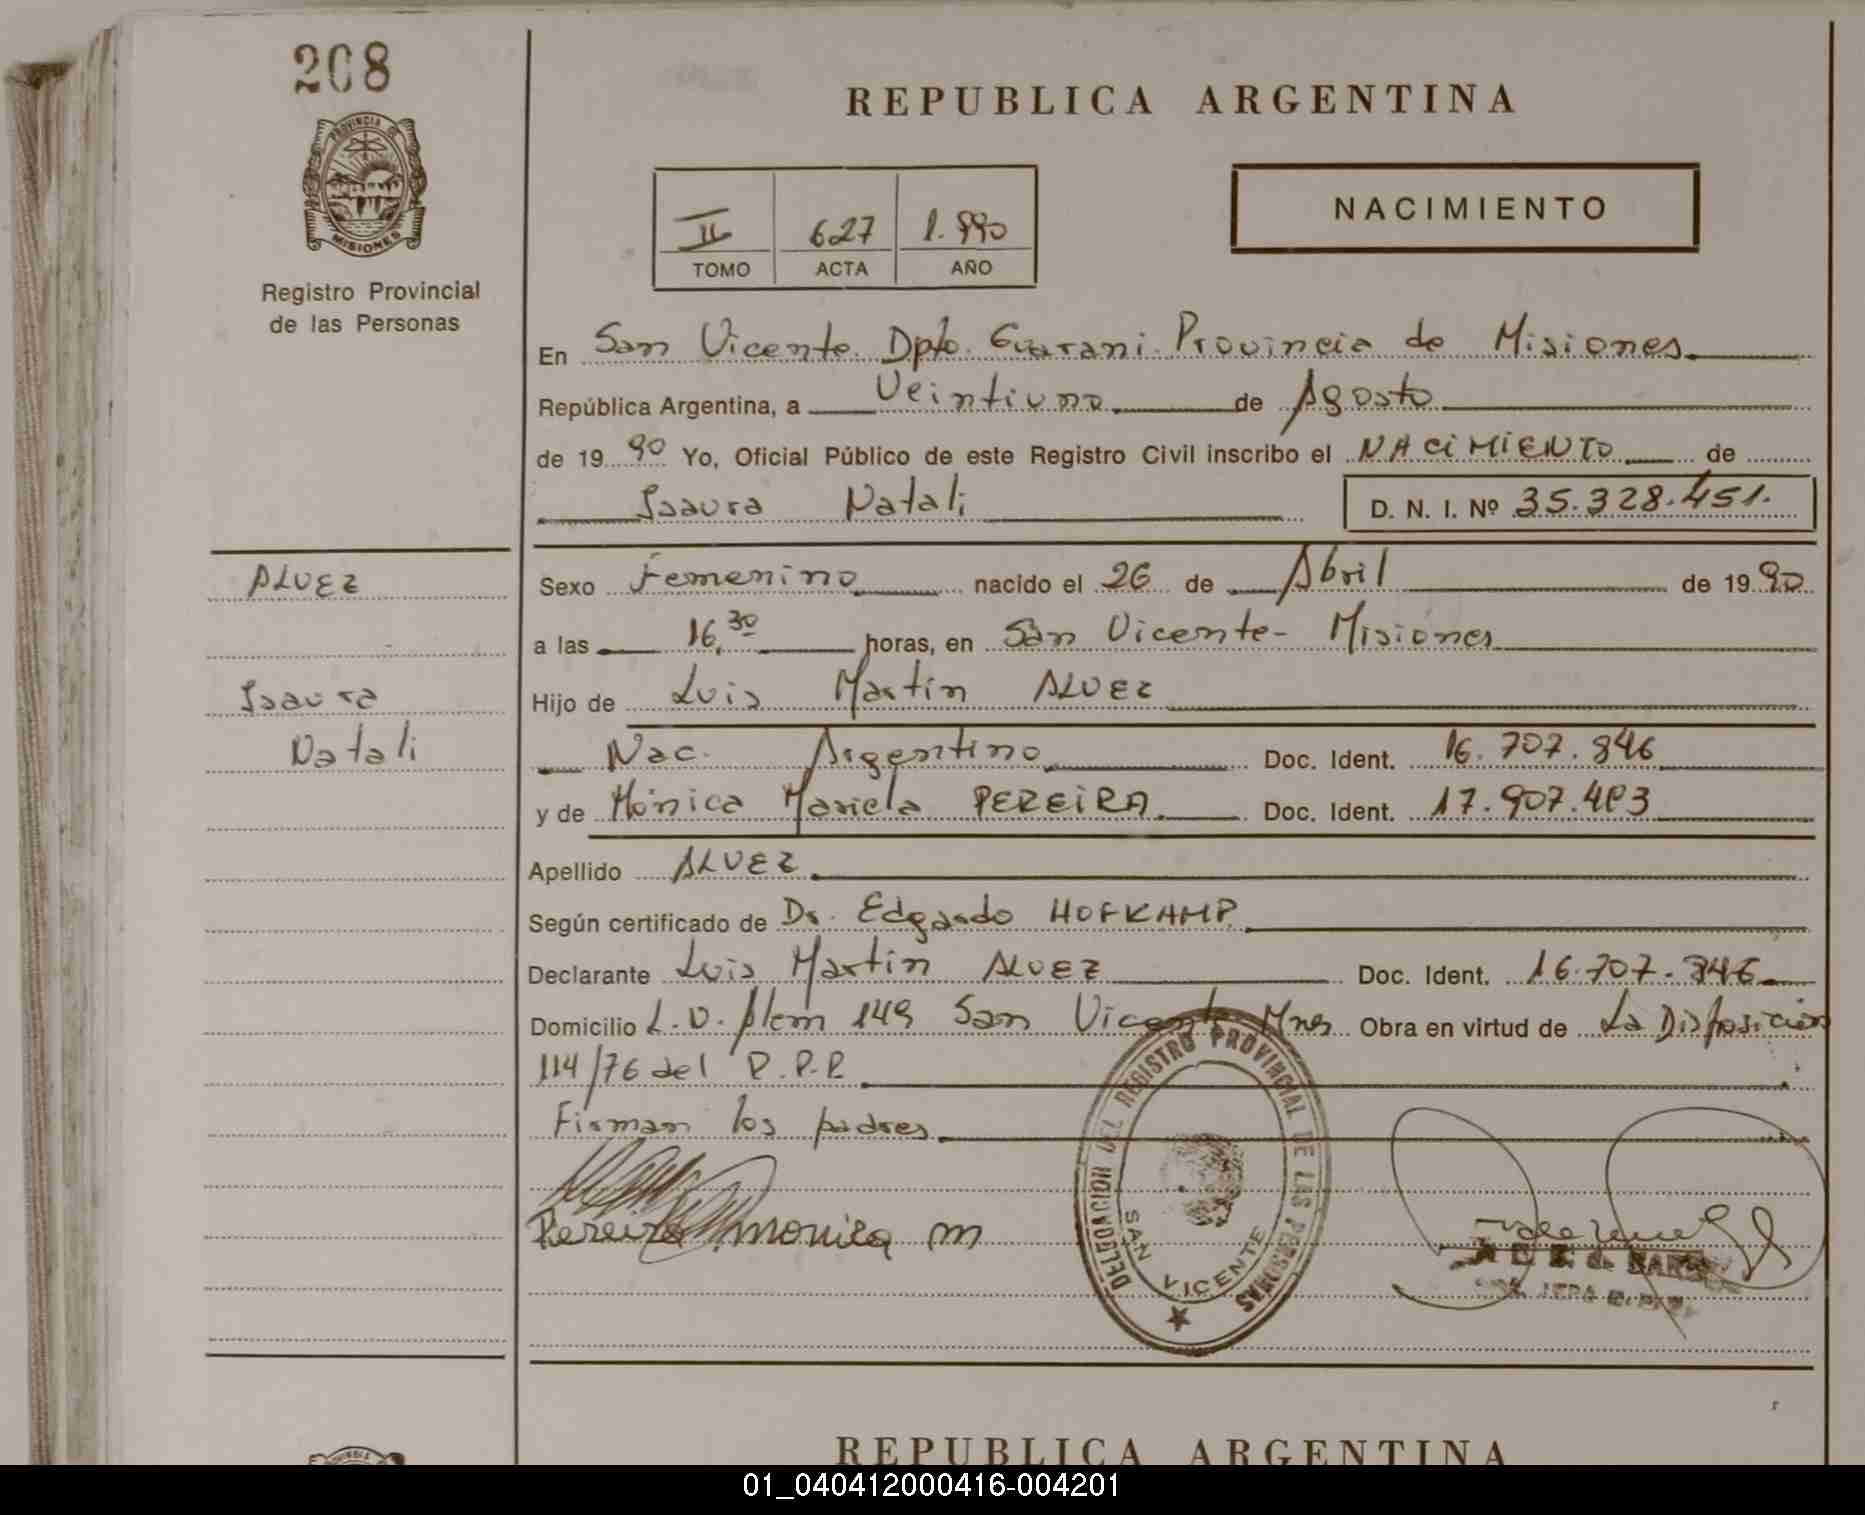 208
PROVINCIA DE
MISIONES
Registro Provincial
de las Personas
REPUBLICA ARGENTINA
II 627 1.990
TOMO ACTA AÑO
NACIMIENTO
En San Vicente. Dpto. Guarani. Provincia de Misiones
República Argentina, a Veintiuno de Agosto
de 19 90 Yo, Oficial Público de este Registro Civil inscribo el NACiMiENTO de
Isaura Natali D. N. I. Nº 35.328.451.
ALVEZ
Isaura
Natali
Sexo Femenino nacido el 26 de Abril de 19 90
a las 16,30 horas, en San Vicente- Misiones
Hijo de Luis Martin ALVEZ
Nac. Argentino Doc. Ident. 16.707.846
y de Mónica Mariela PEREiRA. Doc. Ident. 17.907.
Apellido ALVEZ
Según certificado de Dr. Edgardo HOFKAMP.
Declarante Luis Martin ALVEZ Doc. Ident. 16.707.846
Domicilio L.N. Alem 149 San Vicente Mnes Obra en virtud de La Disposicion
114/76 del R.P.P.
Firman los padres
Pereira monica m
DELEGACION DEL REGISTRO PROVINCIAL DE LAS PERSONAS
SAN VICENTE
REPUBLICA ARGENTINA
01_040412000416-004201